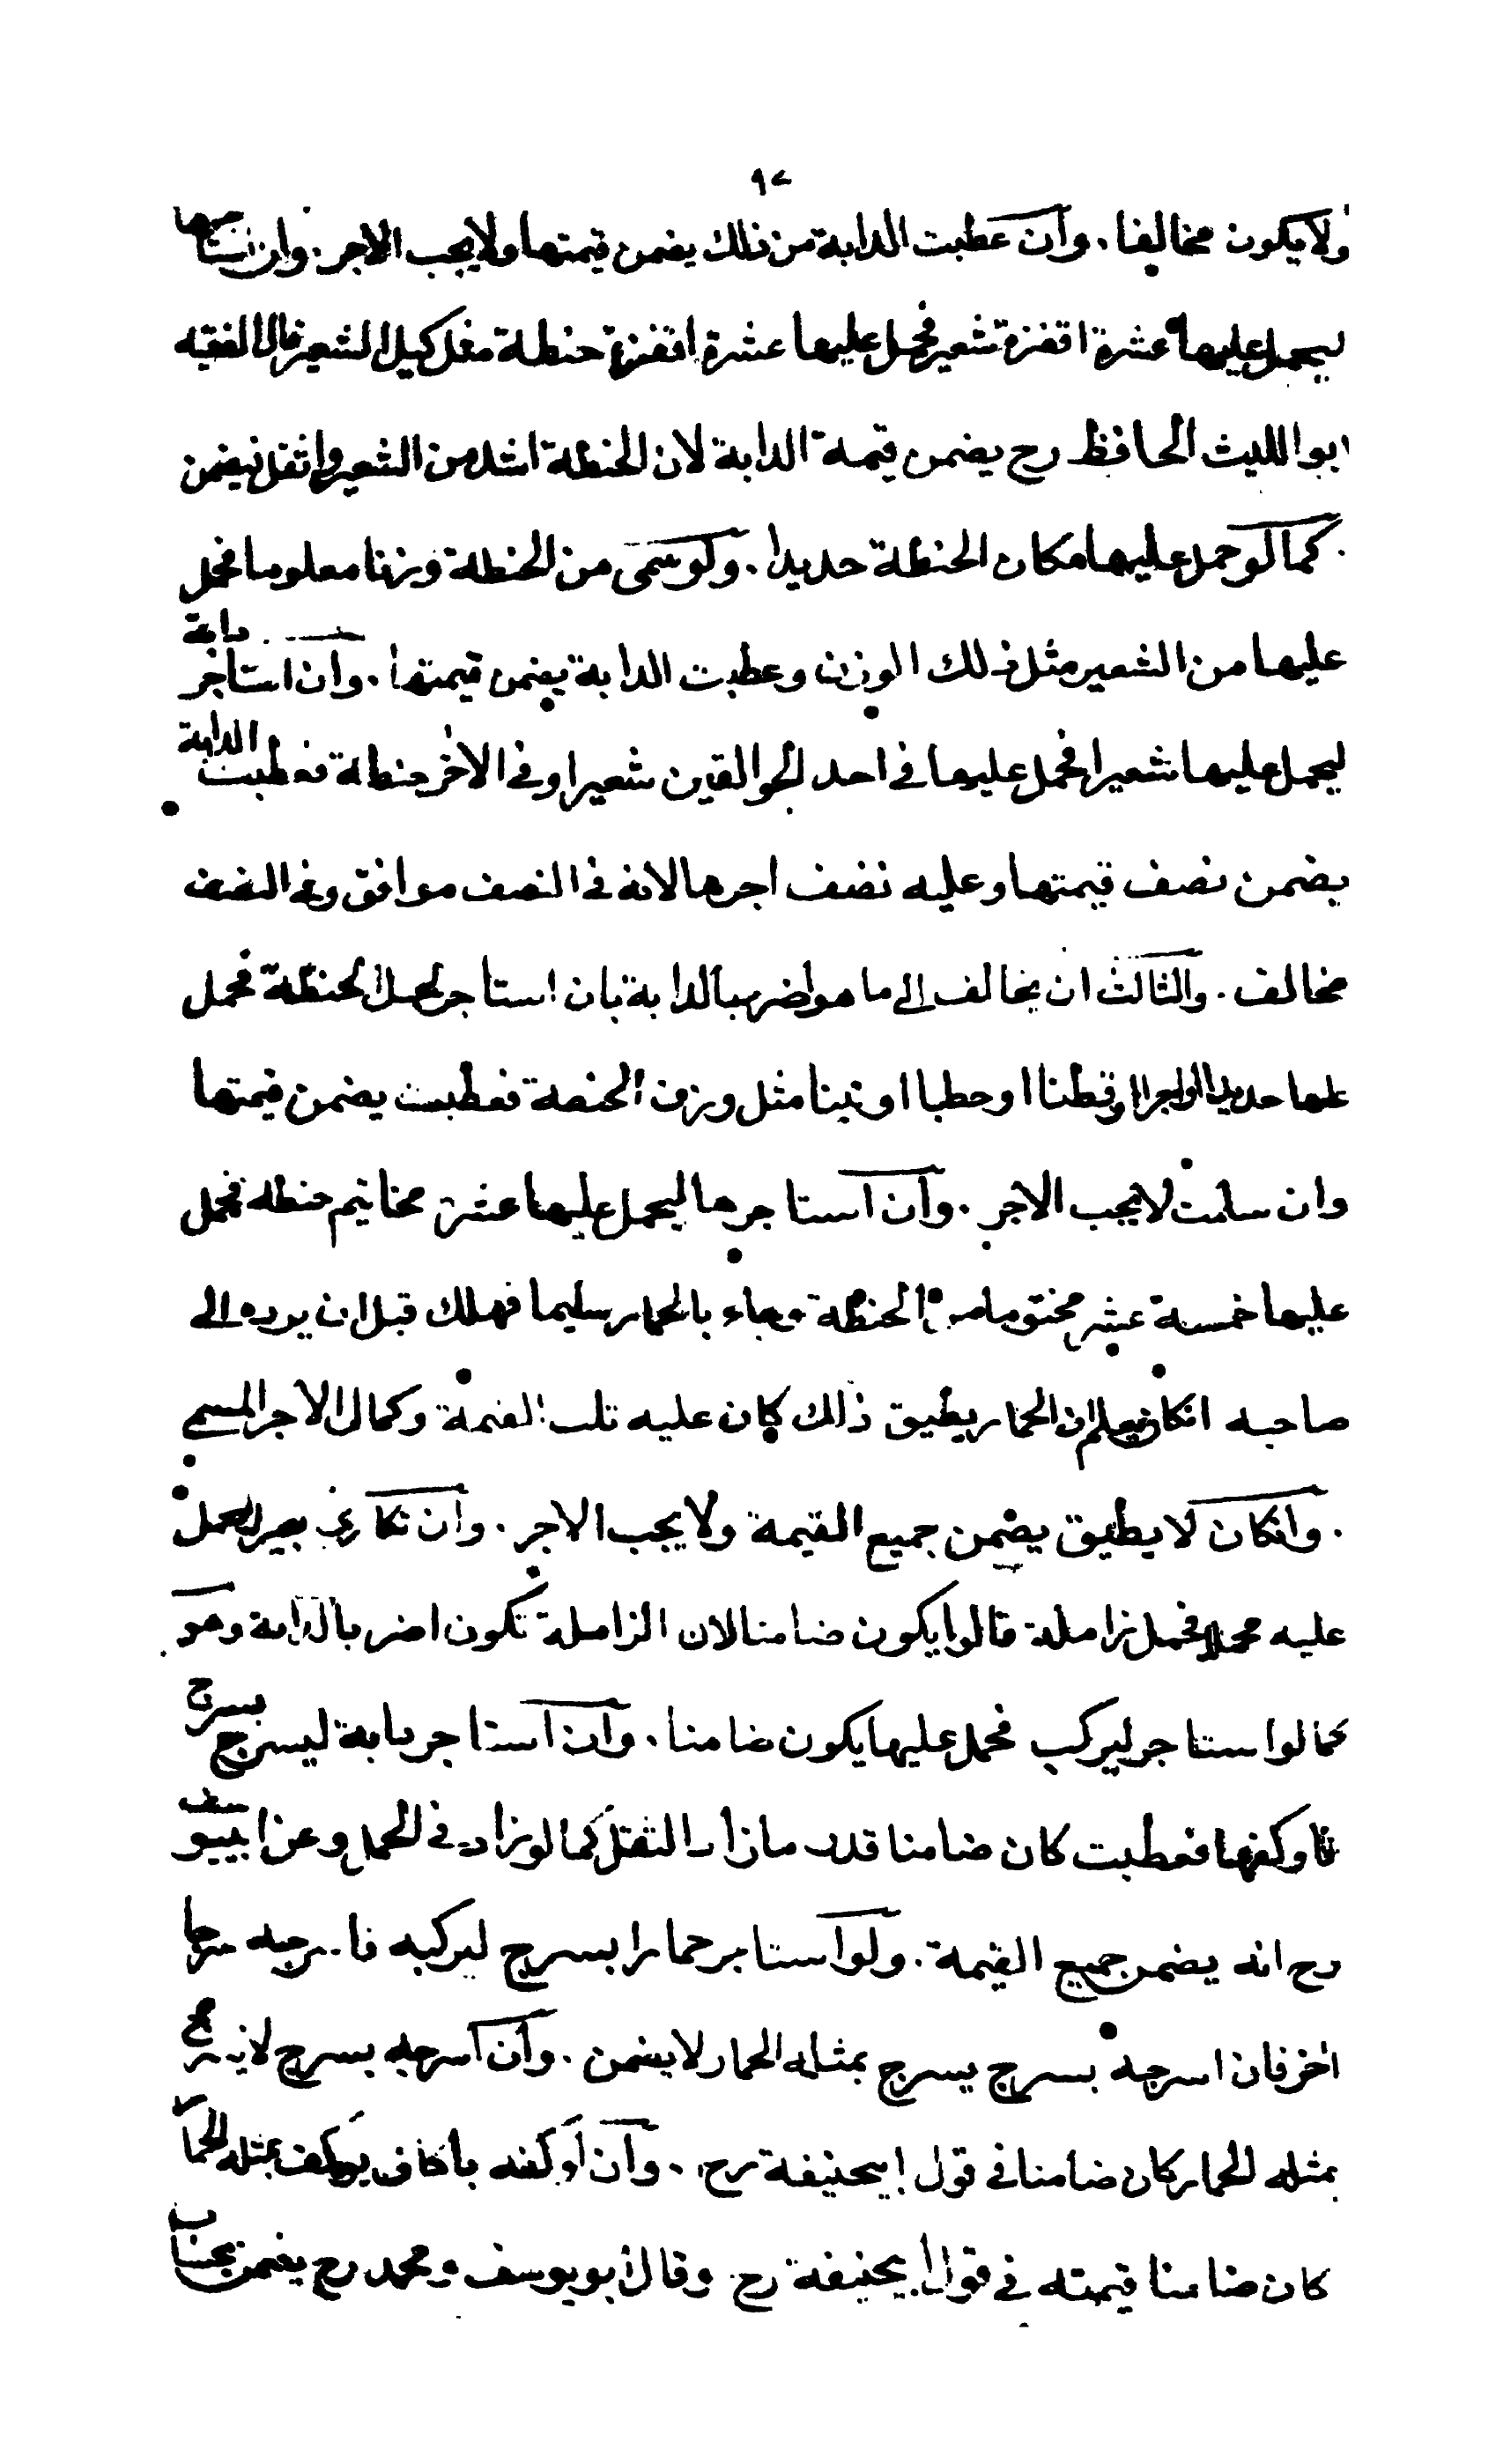 ٩٢
ولا يكون مخالفا . وان عطبت الدابة من ذلك يضمن قيمتها ولا يجب الاجر . وان استاجرها
ليحمل عليها عشرة اقفزة شعير فحمل عليها عشرة اقفزة حنطة مثل كيل الشعير قال الفقيه
ابو الليث الحافظ رح يضمن قيمة الدابة لان الحنطة اشد من الشعير واثقل فيضمن
كما لو حمل عليها مكان الحنطة حديدا . ولو سمى من الحنطة وزنا معلوما فحمل
عليها من الشعير مثل ذلك الوزن وعطبت الدابة يضمن قيمتها . وان استاجر دابة
ليحمل عليها شعيرا فحمل عليها في احد الجوالقين شعيرا وفي الاخر حنطة فعطبت الدابة
يضمن نصف قيمتها وعليه نصف اجرها لانه في النصف موافق وفي النصف
مخالف . والثالث ان يخالف الى ما هو اضر بالدابة بان استاجر لحمل الحنطة فحمل
عليها حديدا او اجرا او قطنا او حطبا او تبنا مثل وزن الحنطة فعطبت يضمن قيمتها
وان سلمت لا يجب الاجر . وان استاجرها ليحمل عليها عشرة مخاتيم حنطة فحمل
عليها خمسة عشر مختوما من الحنطة وجاء بالحمار سليما فهلك قبل ان يرده الى
صاحبه انكان يعلم ان الحمار يطيق ذلك كان عليه ثلث القيمة وكمال الاجر المسمى
. وانكان لا يطيق يضمن جميع القيمة ولا يجب الاجر . وان تكارى بعير ليحمل
عليه محملا فحمل زاملة قالوا يكون ضامنا لان الزاملة تكون اضر بالدابة وهو
كما لو استاجر ليركب فحمل عليها يكون ضامنا . وان استاجر دابة ليسرج بسرج
فاوكفها فعطبت كان ضامنا قدر ما زاد الثقل كما لو زاد في الحمل وعن ابييوسف
رح انه يضمن جميع القيمة . ولو استاجر حمارا بسرج ليركبه فاسرجه سرجا
اخر فان اسرجه بسرج يسرج بمثله الحمار لا يضمن . وان اسرجه بسرج لا يسرج
بمثله الحمار كان ضامنا في قول ابيحنيفة رح . وان اوكفه باكاف يوكف بمثله الحمار
كان ضامنا قيمته في قول ابيحنيفة رح وقال ابو يوسف ومحمد رح يضمن بحساب